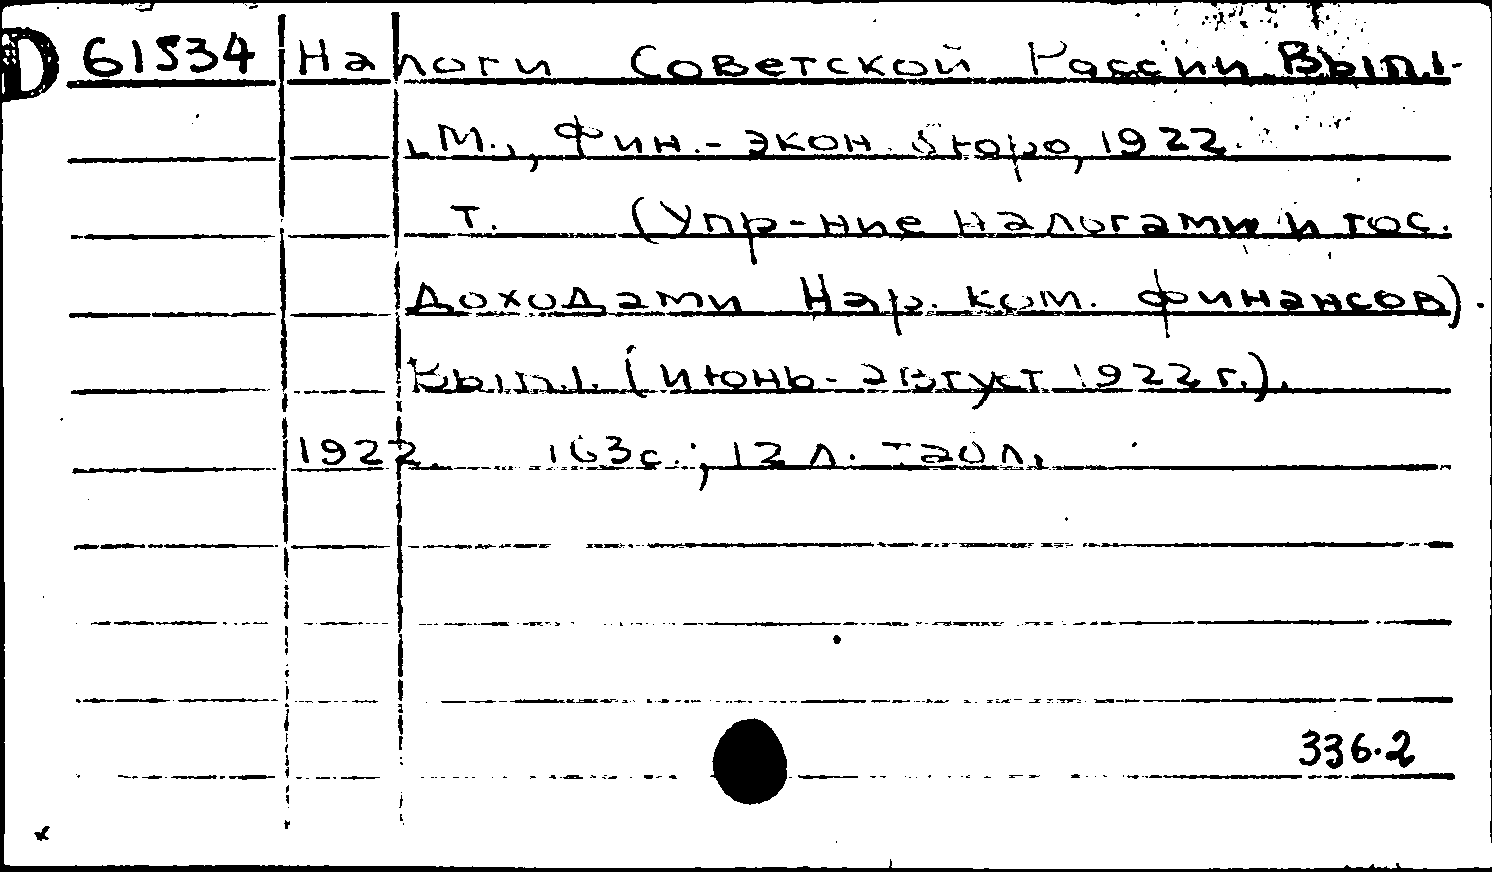 D 61534 Налоги Советской России. Вып.1-
, М., Фин.-экон. бюро, 1922.
т. (Упр-ние налогами и гос.
доходами Нар. ком. финансов).
Вып.1. (июнь-август 1922 г.).
1922. 163с.; 12 л. табл.
336.2